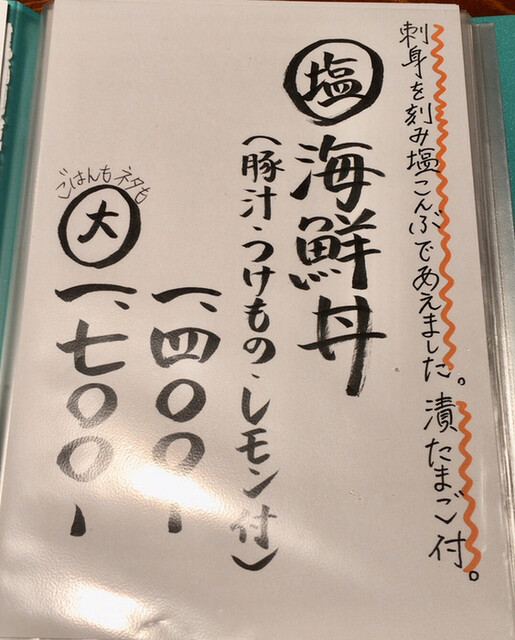 刺身を刻み塩こんぶであえました。漬たまご付。
塩 海鮮丼
(豚汁・つけもの・レモン付)
一、四〇〇ー
ごはんもネタも
大 一、七〇〇ー